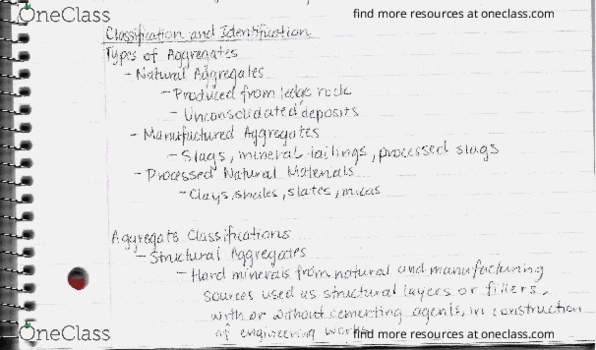 OneClass
find more resources at oneclass.com
Classification and Identification
Types of Aggregates
- Natural Aggregates
- Produced from ledge rock
- Unconsolidated deposits
- Manufactured Aggregates
- Slags, mineral tailings, processed slags
- Processed Natural Materials
- Clays, shales, slates, micas
Aggregate Classifications
- Structural Aggregates
- Hard minerals from natural and manufacturing
sources used as structural layers or fillers,
with or without cementing agents, in construction
of engineering work
OneClass
find more resources at oneclass.com